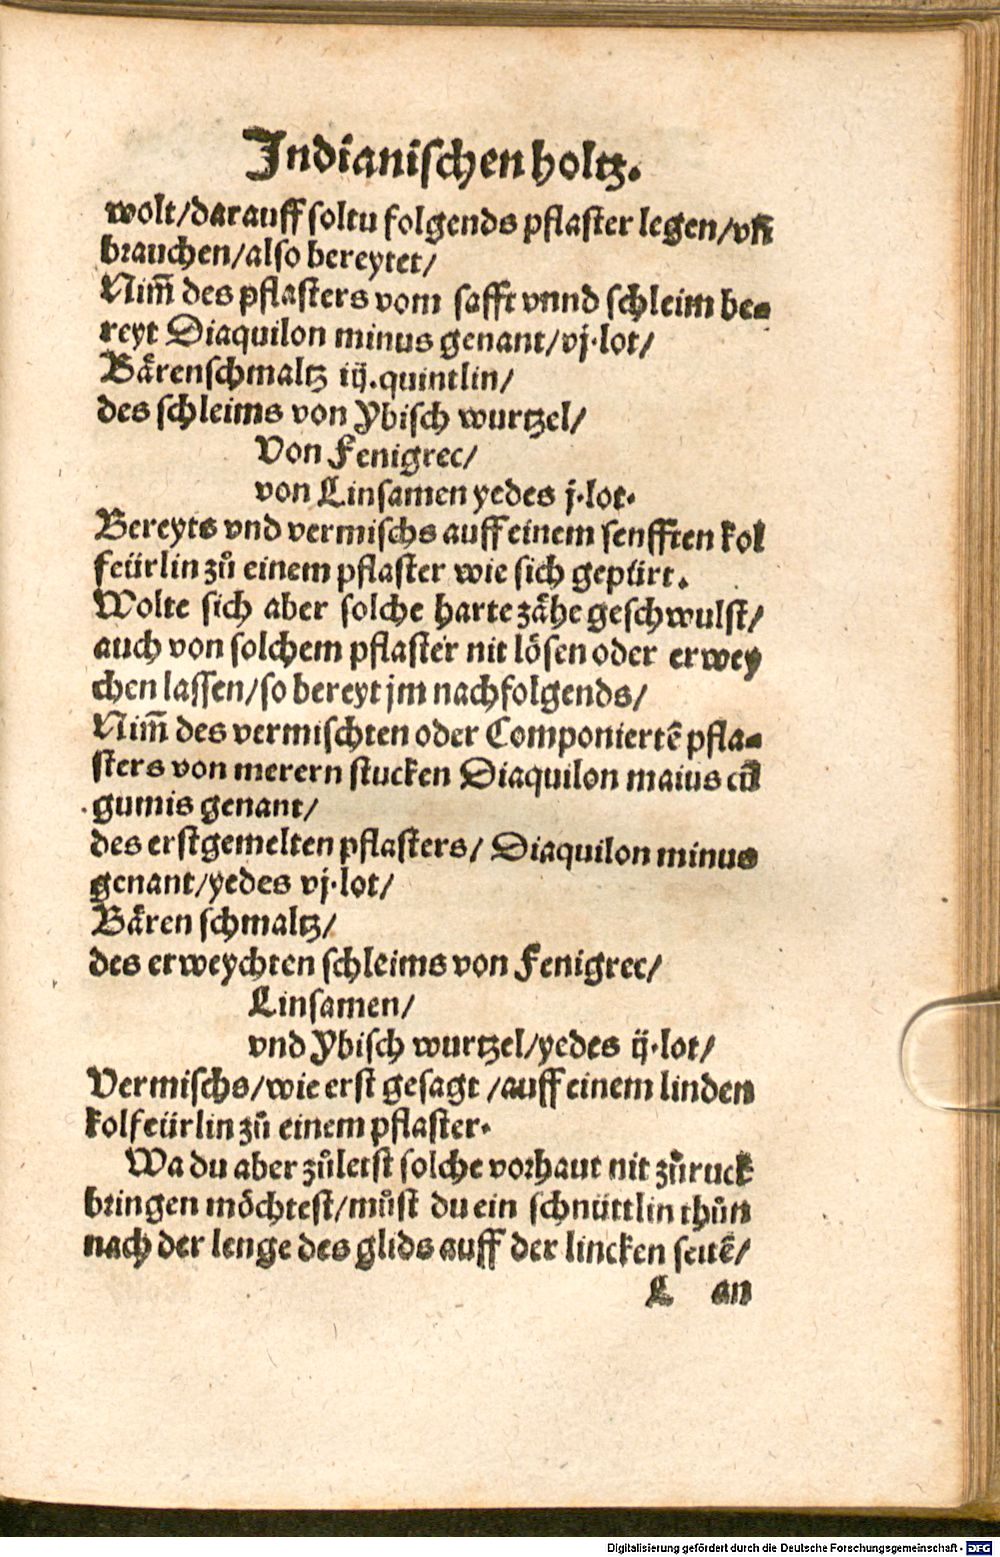 Indianischen holtz.
wolt/darauff soltu folgends pflaster legen/vñ
brauchen/also bereytet/
Nim̃ des pflasters vom safft vnnd schleim be-
reyt Diaquilon minus genant/vj.lot/
Bärenschmaltz iij.quintlin/
des schleims von Ybisch wurtzel/
Von Fenigrec/
von Linsamen yedes j.lot.
Bereyts vnd vermischs auff einem senfften kol
feürlin zů einem pflaster wie sich gepürt.
Wolte sich aber solche harte zähe geschwulst/
auch von solchem pflaster nit lösen oder erwey
chen lassen/so bereyt jm nachfolgends/
Nim̃ des vermischten oder Componiertẽ pfla-
sters von merern stucken Diaquilon maius cũ
gumis genant/
des erstgemelten pflasters/ Diaquilon minus
genant/yedes vj.lot/
Bären schmaltz/
des erweychten schleims von Fenigrec/
Linsamen/
vnd Ybisch wurtzel/yedes ij.lot/
Vermischs/wie erst gesagt/auff einem linden
kolfeürlin zů einem pflaster.
Wa du aber zůletst solche vorhaut nit zůruck
bringen möchtest/můst du ein schnüttlin thůn
nach der lenge des glids auff der lincken seitẽ/
L an
Digitalisierung gefördert durch die Deutsche Forschungsgemeinschaft - DFG